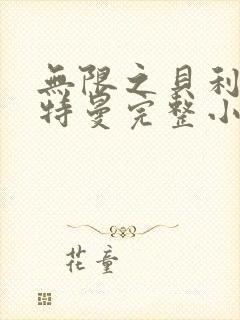 無限之貝利
特曼完整小
花童